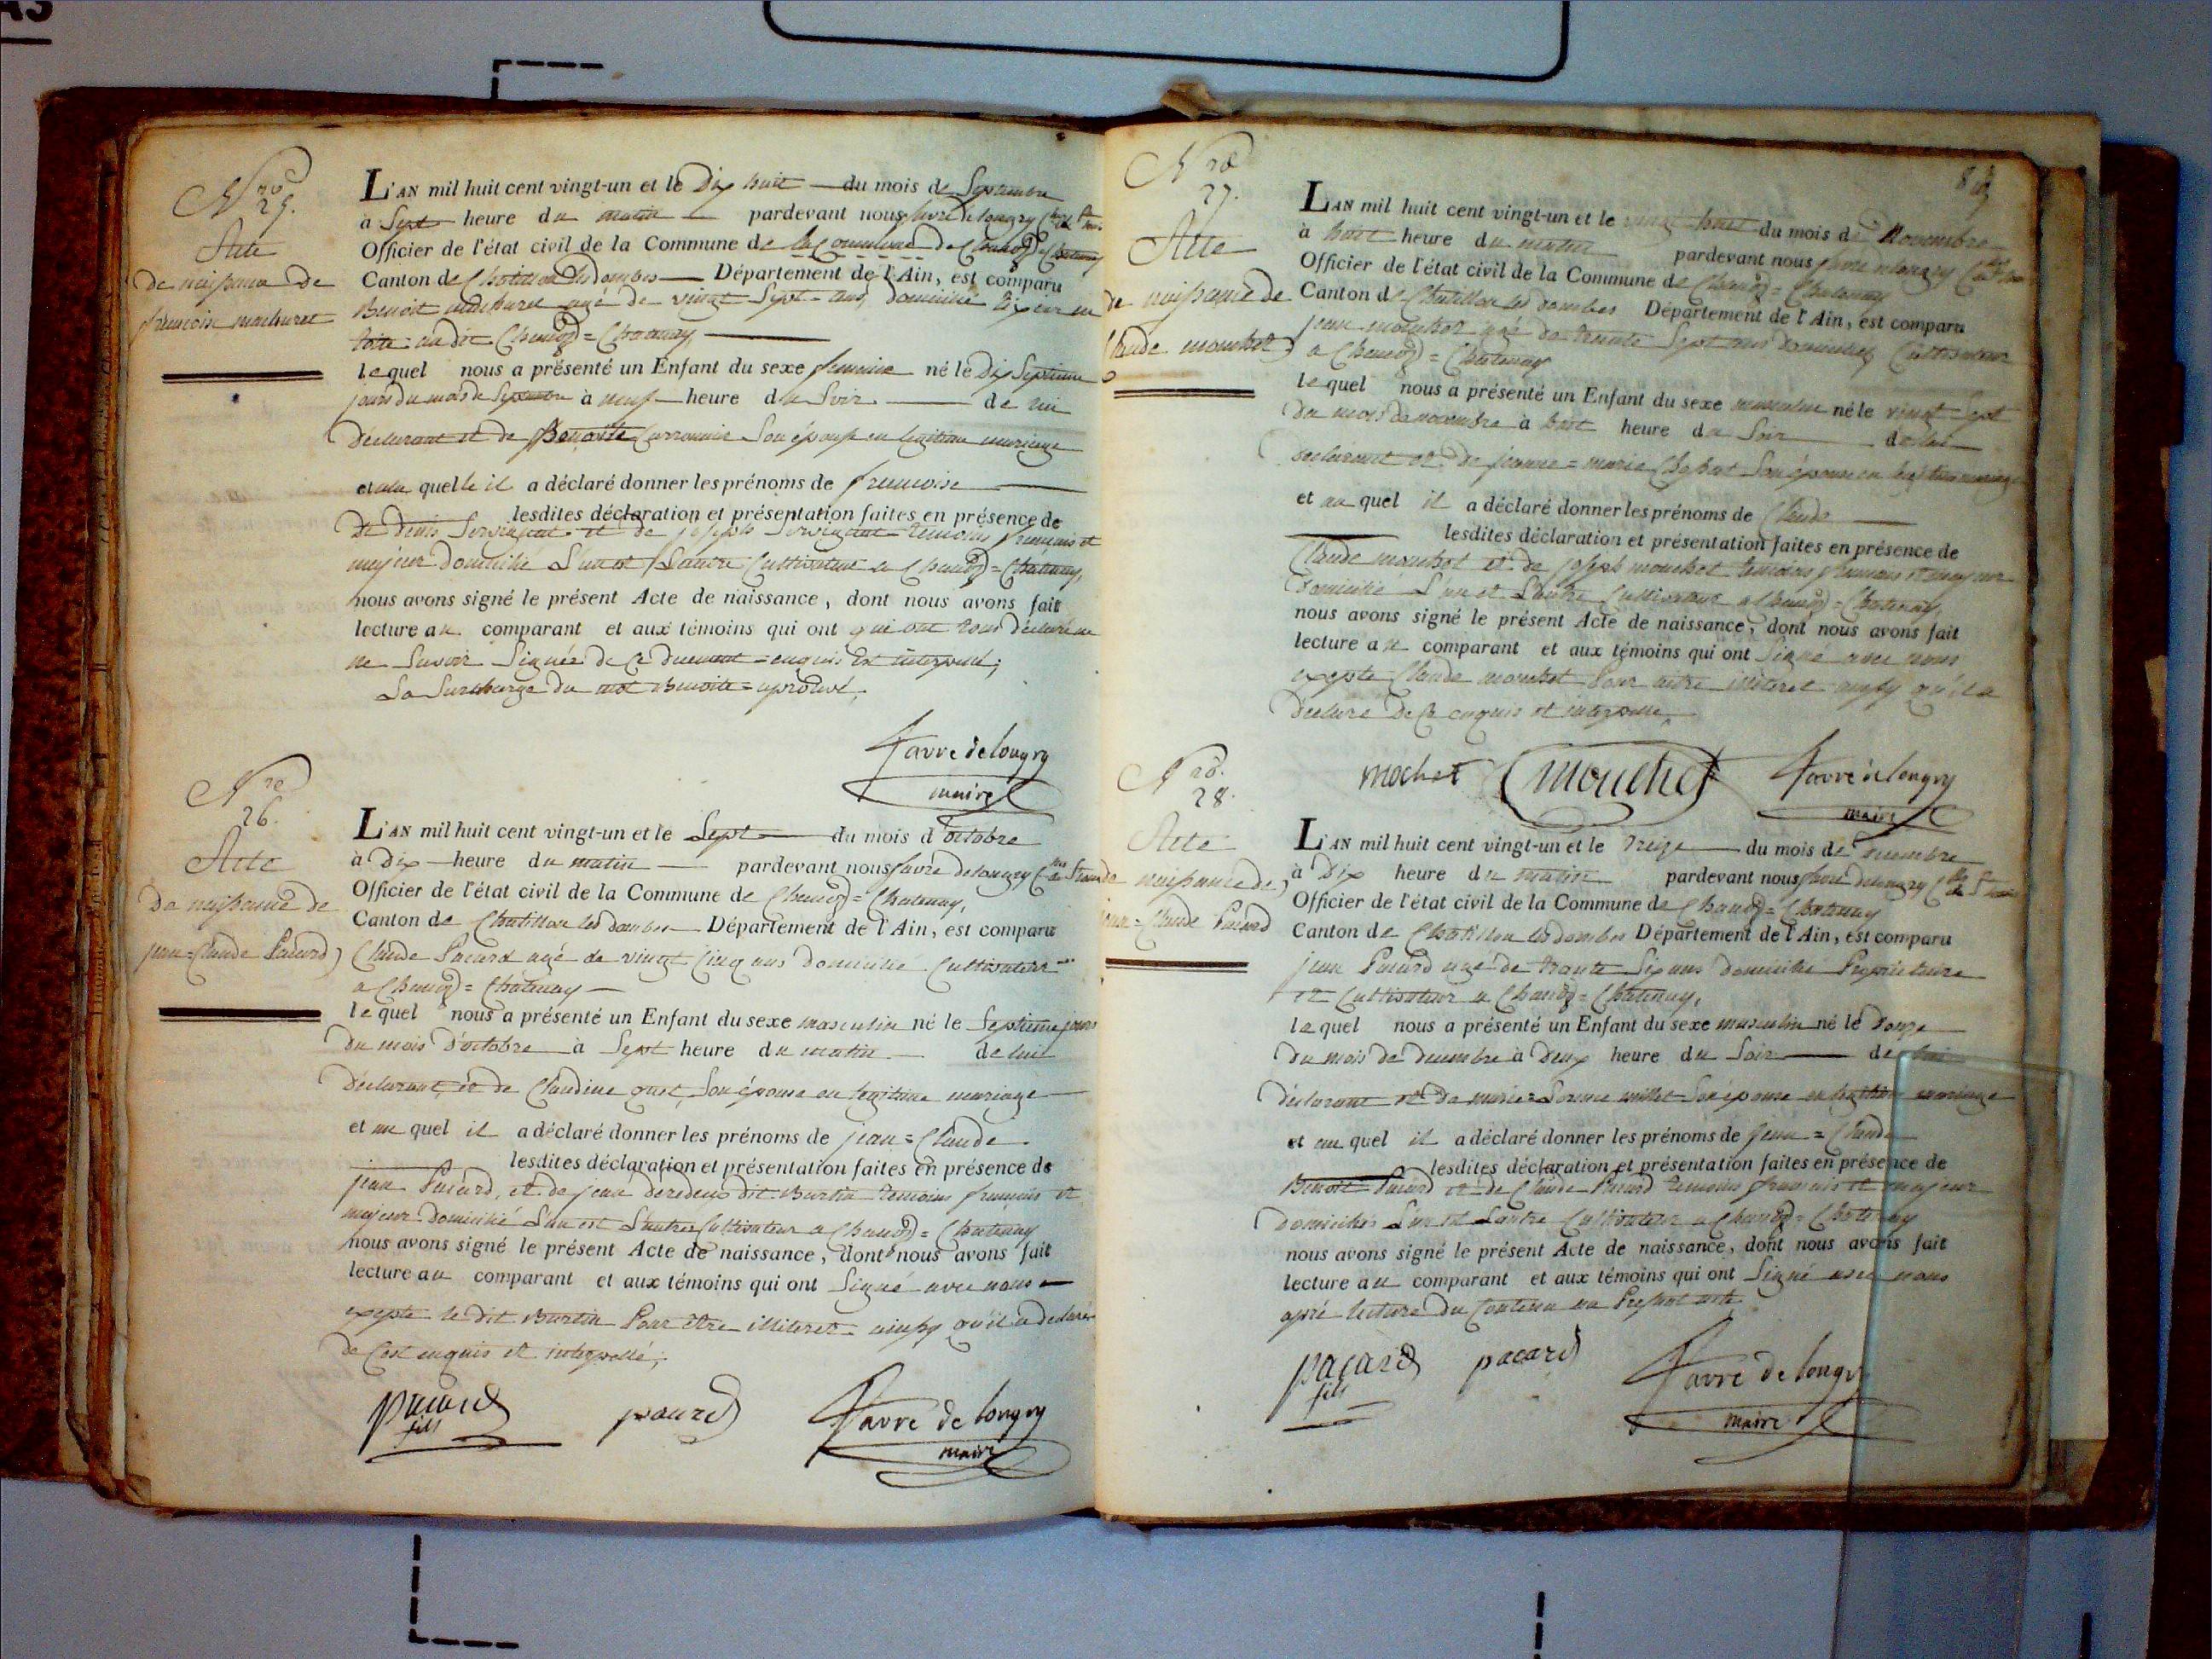 AS
Nro
25.
Acte
de naissance de
francoise machuret
L'AN mil huit cent vingt-un et le Dix huit du mois de Septembre
à Sept heure du matin pardevant nous favre de longry
Officier de l'état civil de la Commune de la Commune de
Canton de Chatillon les dombes Département de l'Ain, est comparu
Benoit machuret agé de vingt Sept ans, domicilié
au dit
le quel nous a présenté un Enfant du sexe feminin né le Dix Septieme
jours du mois de Septembre à neuf heure du Soir de lui
déclarant et de Benoite Son épouse en legitime mariage
et au quelle il a déclaré donner les prénoms de francoise
lesdites déclaration et présentation faites en présence de
De denis et de joseph temoins francais et
majeur domicilié L'un et L'autre Cultivateur a
nous avons signé le présent Acte de naissance, dont nous avons fait
lecture au comparant et aux témoins qui ont qui ont tous déclaré ne
ne Savoir Signée de Ce enquis et interpellé;
La Surcharge du mot Benoite aprouvé,
favre de longry
maire
Nro
26.
Acte
De naissance de
jean=Claude Pacard
L'AN mil huit cent vingt-un et le Sept du mois d'octobre
à Dix heure du matin pardevant nous favre de longry
Officier de l'état civil de la Commune de
Canton de Chatillon les dombes Département de l'Ain, est comparu
Claude Pacard agé de vingt Cinq ans domicilié Cultivateur
a
le quel nous a présenté un Enfant du sexe masculin né le Septieme jours
du mois d'octobre à Sept heure du matin de lui
déclarant, et de Claudine Son épouse en legitime mariage
et au quel il a déclaré donner les prénoms de jean=Claude
lesdites déclaration et présentation faites en présence de
jean Pacard, et de jean dit Burtin temoins francais et
majeur domicilié L'un est L'autre Cultivateur a
nous avons signé le présent Acte de naissance, dont nous avons fait
lecture au comparant et aux témoins qui ont Signé avec nous
le dit Burtin Pour être illiteret qu'il a declaré
de C'est enquis et interpellé;
pacard
fils
pacard
favre de longry
maire
Nro
27.
Acte
de naissance de
Claude mouchet
L'AN mil huit cent vingt-un et le vingt huit du mois de Novembre
à huit heure du matin pardevant nous favre de longry
Officier de l'état civil de la Commune de
Canton de Chatillon les dombes Département de l'Ain, est comparu
jean mouchet agé de trente Sept ans domicilié Cultivateur
a
le quel nous a présenté un Enfant du sexe masculin né le vingt Sept
du mois de novembre à huit heure du Soir de lui
déclarant et de jeanne=marie Son épouse en legitime mariage
et au quel il a déclaré donner les prénoms de Claude
lesdites déclaration et présentation faites en présence de
Claude mouchet et de joseph mouchet temoins francais et majeur
domicilié L'un et L'autre Cultivateur a
nous avons signé le présent Acte de naissance, dont nous avons fait
lecture au comparant et aux témoins qui ont Signé avec nous
Claude mouchet Pour être illiteret qu'il a
déclaré de Ce enquis et interpellé
mochet
mouchet
favre de longry
maire
Nro
28.
Acte
de naissance de
jean=Claude Pacard
L'AN mil huit cent vingt-un et le treize du mois de
à Dix heure du matin pardevant nous favre de longry
Officier de l'état civil de la Commune de
Canton de Chatillon les dombes Département de l'Ain, est comparu
jean Pacard agé de trante Six ans domicilié Propriétaire
et Cultivateur a
le quel nous a présenté un Enfant du sexe masculin né le Douze
du mois de decembre à Deux heure du Soir de lui
déclarant et de marie millet Son épouse en legitime mariage
et au quel il a déclaré donner les prénoms de jean=Claude
lesdites déclaration et présentation faites en présence de
Benoit Pacard et de Claude Pacard temoins francais et majeur
domiciliés L'un et L'autre Cultivateur a
nous avons signé le présent Acte de naissance, dont nous avons fait
lecture au comparant et aux témoins qui ont Signé avec nous
apré lecture du Contenu au Present acte
pacard
fils
pacard
favre de longry
maire